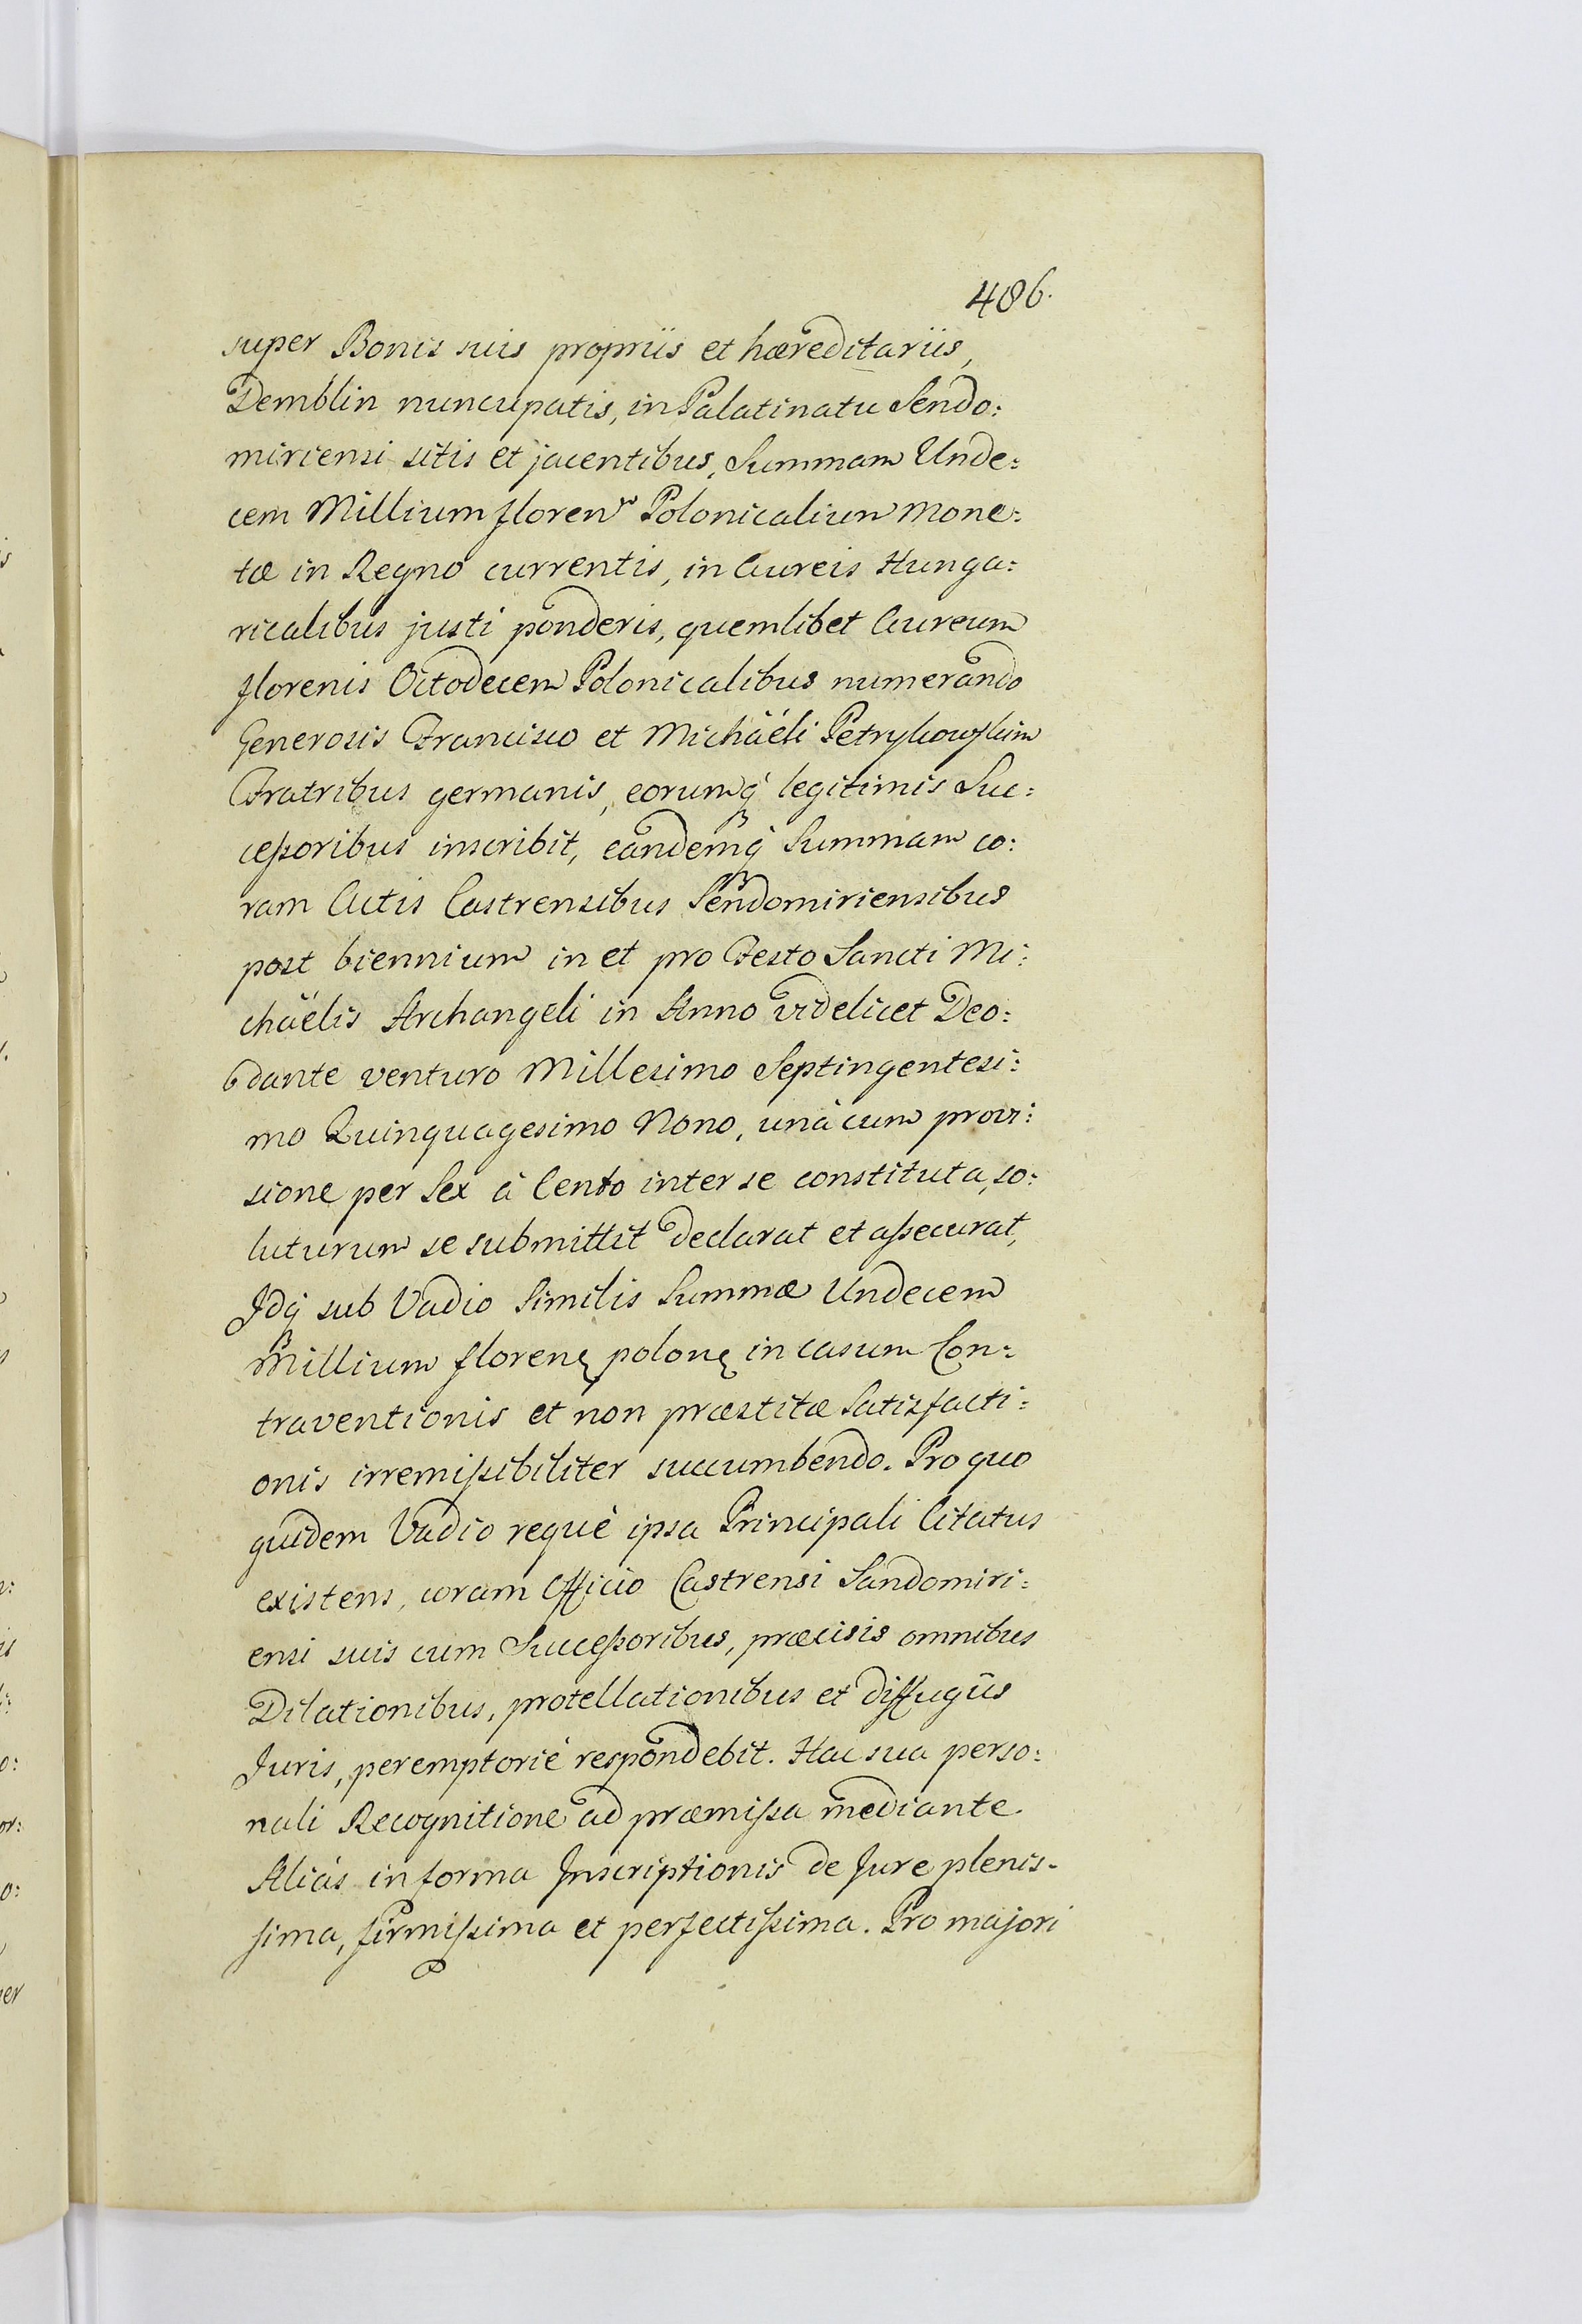 486.
super Bonis suis propriis et hæreditariis,
Demblin nuncupatis, in Palatinatu Sendo:
miriensi sitis et jacentibus, Summam Unde:
cem Millium floren Polonicalium mone:
tæ in Regno currentis, in Aureis Hunga:
ricalibus justi ponderis, quemlibet Aureum
florenis Octodecem Polonicalibus numerando
Generosis Francisco et Michaëli
Fratribus germanis, eorumq́ legitimis Suc:
cessoribus inscribit, eandemq́ Summam co:
ram Actis Castrensibus Sendomiriensibus
post biennium in et pro Festo Sancti Mi:
chäelis Archangeli in Anno videlicet Deo:
dante venturo Millesimo Septingentesi:
mo Quinquagesimo Nono, unà cum provi:
sione per Sex à Cento inter se constituta, so:
luturum se submittit declarat et assecurat,
Idq́ sub Vadio Similis Summæ Undecem
Millium floren polon in casum Con:
traventionis et non præstitæ Satisfacti:
onis irremissibiliter succumbendo. Pro quo
quidem Vadio requè ipsa Principali Citatus
existens, coram Officio Castrensi Sandomiri:
ensi suis cum Successoribus, præcisis omnibus
Dilationibus, protellationibus et diffugiis
Juris, peremptoriè respondebit. Hac sua perso:
nali Recognitione ad præmissa mediante.
Aliàs in forma Inscriptionis de Jure plenis-
sima, firmissima et perfectissima. Pro majori